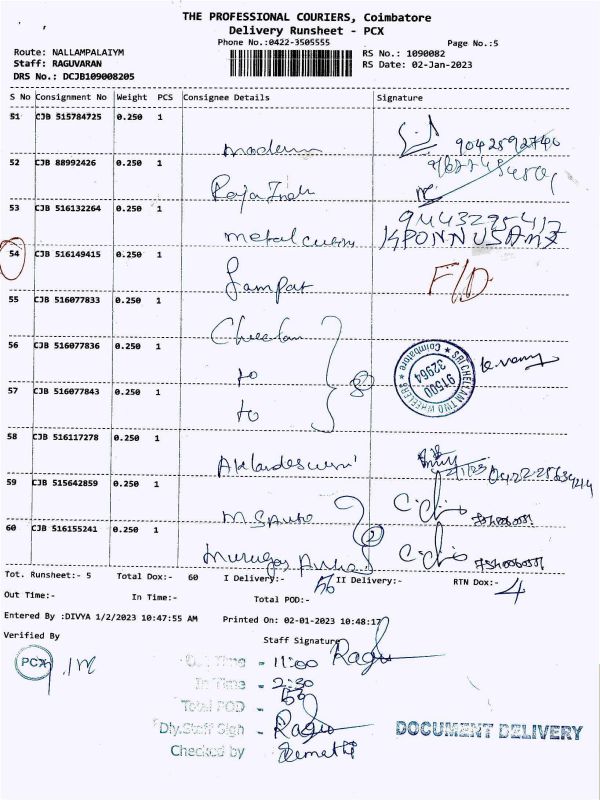 THE PROFESSIONAL COURIERS, Coimbatore
Delivery Runsheet - PCX
Phone No.:0422-3505555
Page No.:5
Route: NALLAMPALAIYM
RS No.: 1090082
Staff: RAGUVARAN
RS Date: 02-Jan-2023
DRS No.: DCJB109008205
S No Consignment No Weight PCS Consignee Details Signature
51 CJB 515784725 0.250 1
Modern
9042592740
52 CJB 88992426 0.250 1
53 CJB 516132264 0.250 1
9443295417
Metal
KPONNUSAMY
54 CJB 516149415 0.250 1
Sampat F/D
55 CJB 516077833 0.250 1
56 CJB 516077836 0.250 1
to
57 CJB 516077843 0.250 1
to
SRI CHELLAM TWO WHEELERS * Coimbatore *
97500
32964
58 CJB 516117278 0.250 1
2/1/23
59 CJB 515642859 0.250 1
M.S Auto
2
60 CJB 516155241 0.250 1
Tot. Runsheet:- 5 Total Dox:- 60 I Delivery:- 56 II Delivery:- RTN Dox:- 4
Out Time:- In Time:- Total POD:-
Entered By :DIVYA 1/2/2023 10:47:55 AM Printed On: 02-01-2023 10:48:17
Verified By Staff Signature
Ragu
PCX
Out Time - 11:00
In Time - 2:30
Total POD -
Dly.Staff Sign - Ragu
Checked by
DOCUMENT DELIVERY